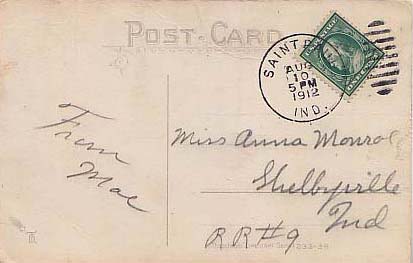 POST-CARD
SAINT
AUG
10
5 PM
1912
IND.
From
Mae
Miss Anna Monroe
Shelbyville
Ind
RR#9
233-39